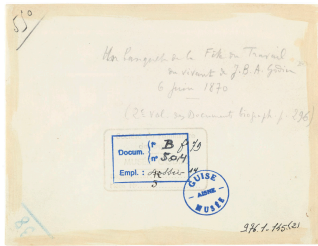 55°
Un banquet de la Fête du Travail
du vivant de J.B.A. Godin
6 juin 1870
(2e vol. des Documents biograph. p. 296)
Docum. (r B f 79
(n° 504
Empl. :
GUISE
AISNE
MUSÉE
58
976.1.165(2)